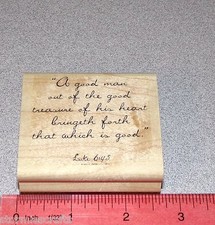 "A good man
out of the good
treasure of his heart
bringeth forth
that which is good."
Luke 6:45
0 Inch 1 2 3